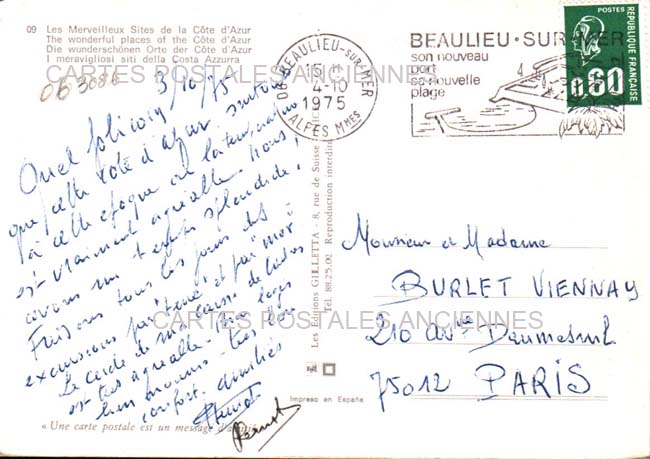 09 Les Merveilleux Sites de la Côte d'Azur
The wonderful places of the Côte d'Azur
Die wunderschönen Orte der Côte d'Azur
I meravigliosi siti della Costa Azzurra
CARTES POSTALES ANCIENNES
3-10-75
Quel joli coin surtout
que cette Côte d'azur
à cette époque où la température
est vraiment agréable. Nous
avons un temps splendide,
Faisons tous les jours des
excursions par terre et par mer
Le cercle de
est très agréable.
bien nourris - très
confort. amitiés
« Une carte postale est un message d'amitié
Les Editions GILLETTA - 8, rue de Suisse
Tél. 88.25.02 Reproduction interdite
Impreso en España
06 BEAULIEU-SUR-MER
15 H
4-10
1975
ALPES Mmes
BEAULIEU·SUR-MER
son nouveau
port
sa nouvelle
plage
POSTES
REPUBLIQUE FRANÇAISE
0,60
Monsieur et Madame
BURLET VIENNAY
210 Ave Daumesnil
75012 PARIS
CARTES POSTALES ANCIENNES